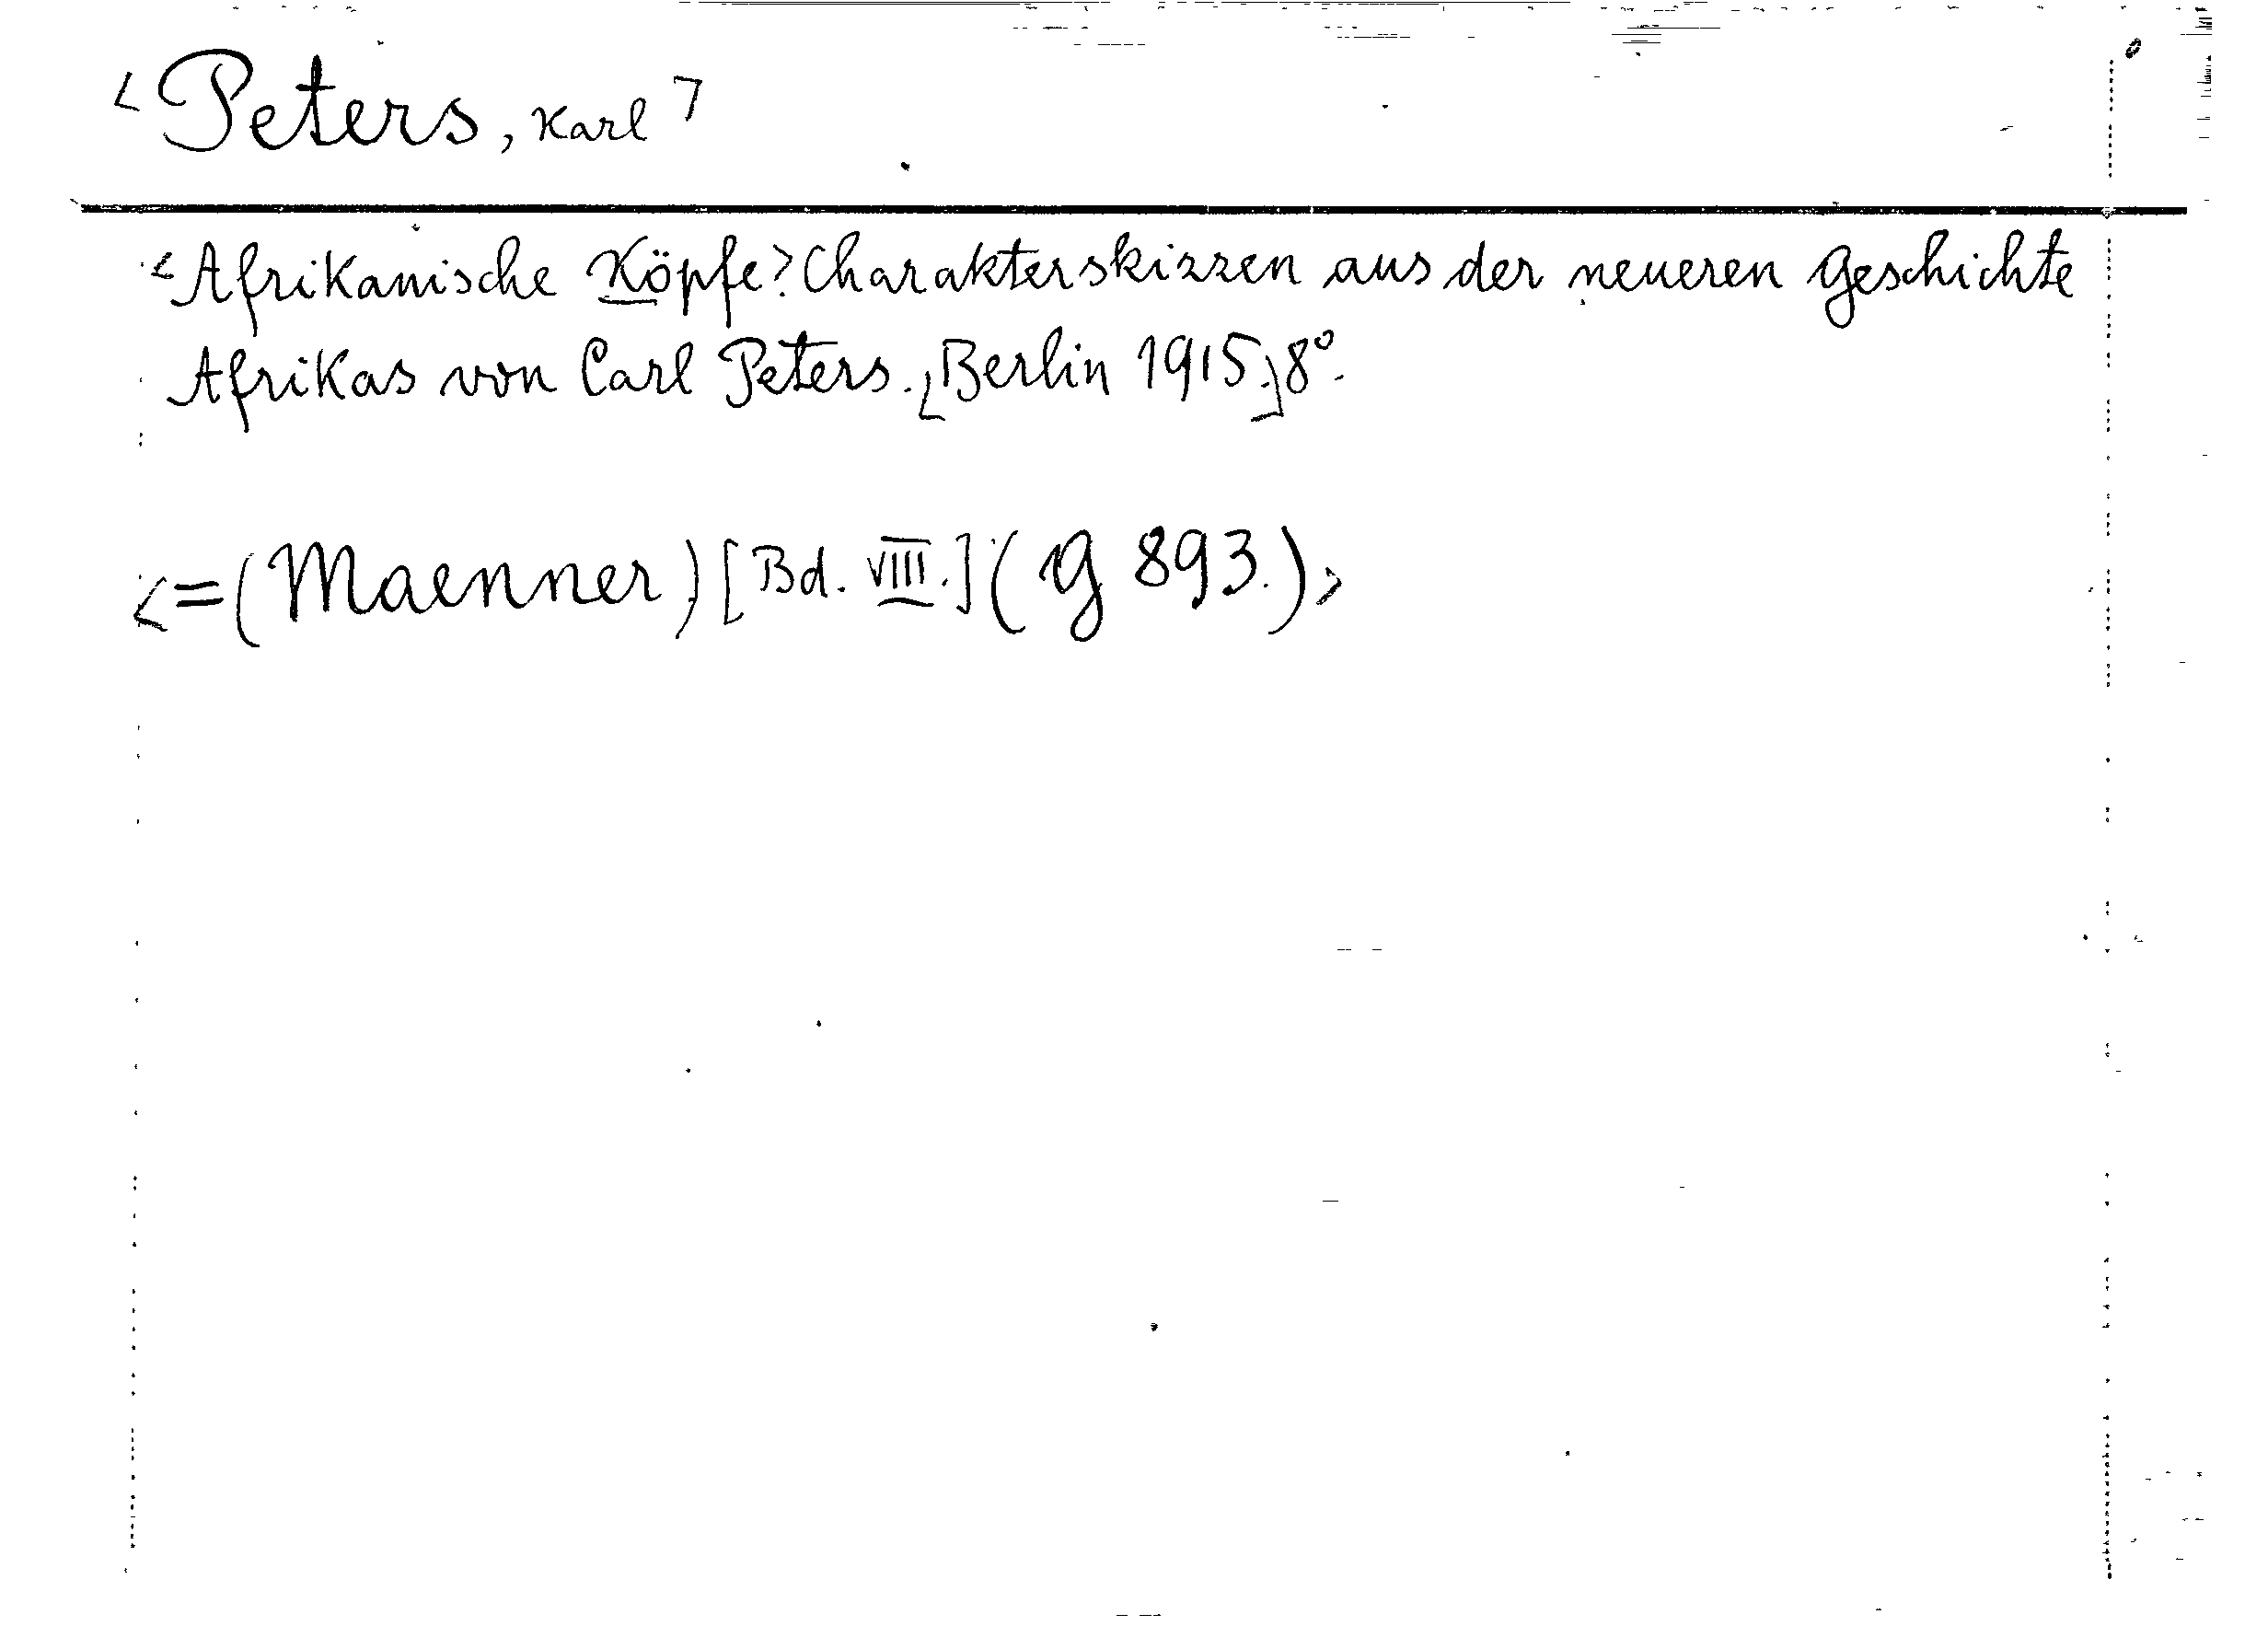 <Peters, Karl>
<Afrikanische Köpfe> Charakterskizzen aus der neueren Geschichte
Afrikas von Carl Peters. [Berlin 1915.] 8°.
<=(Maenner) [Bd. VIII.] (G 893.)>